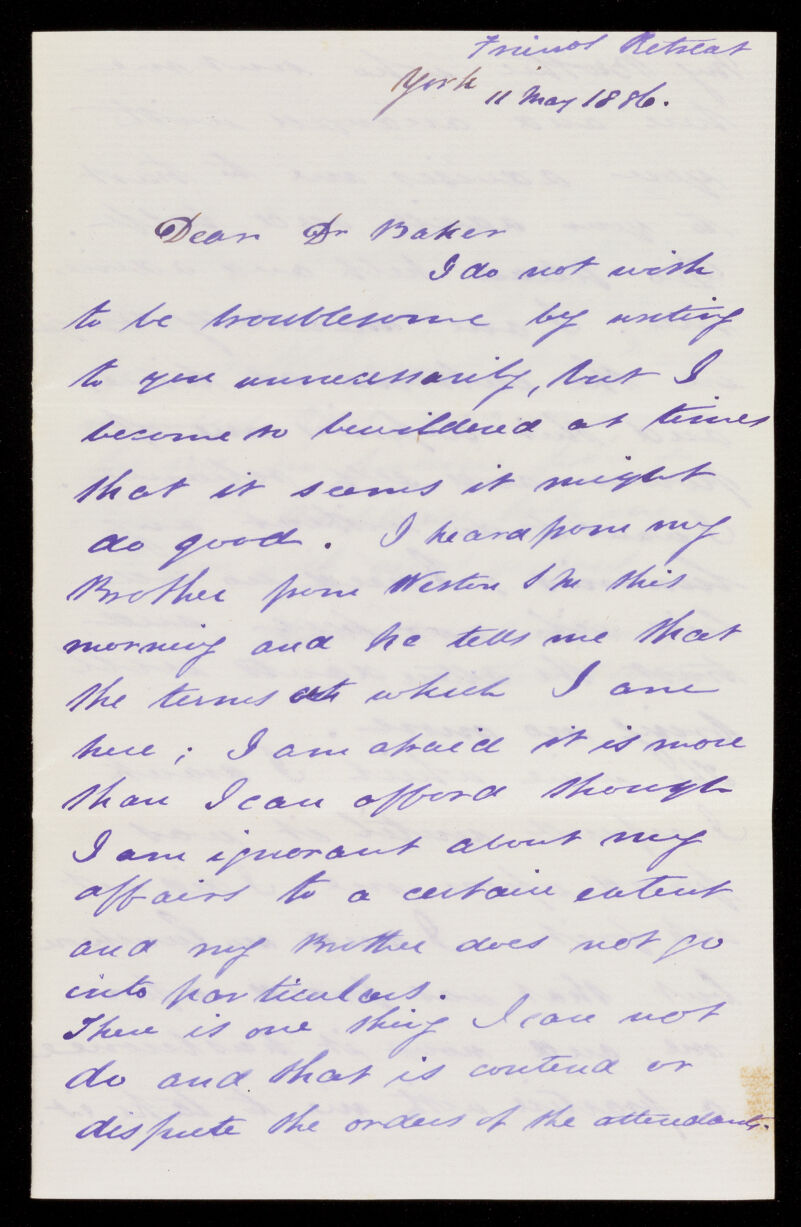 Friends Retreat
York
11 May 1886.
Dear Dr Baker
I do not wish
to be troublesome by writing
to you unnecessarily, but I
become so bewildered at times
that it seems it might
do good. I heard from my
Brother from Weston S M this
morning and he tells me that
the terms at which I am
here; I am afraid it is more
than I can afford though
I am ignorant about my
affairs to a certain extent
and my Brother does not go
into particulars.
There is one thing I can not
do and that is contend or
dispute the orders of the attendants.